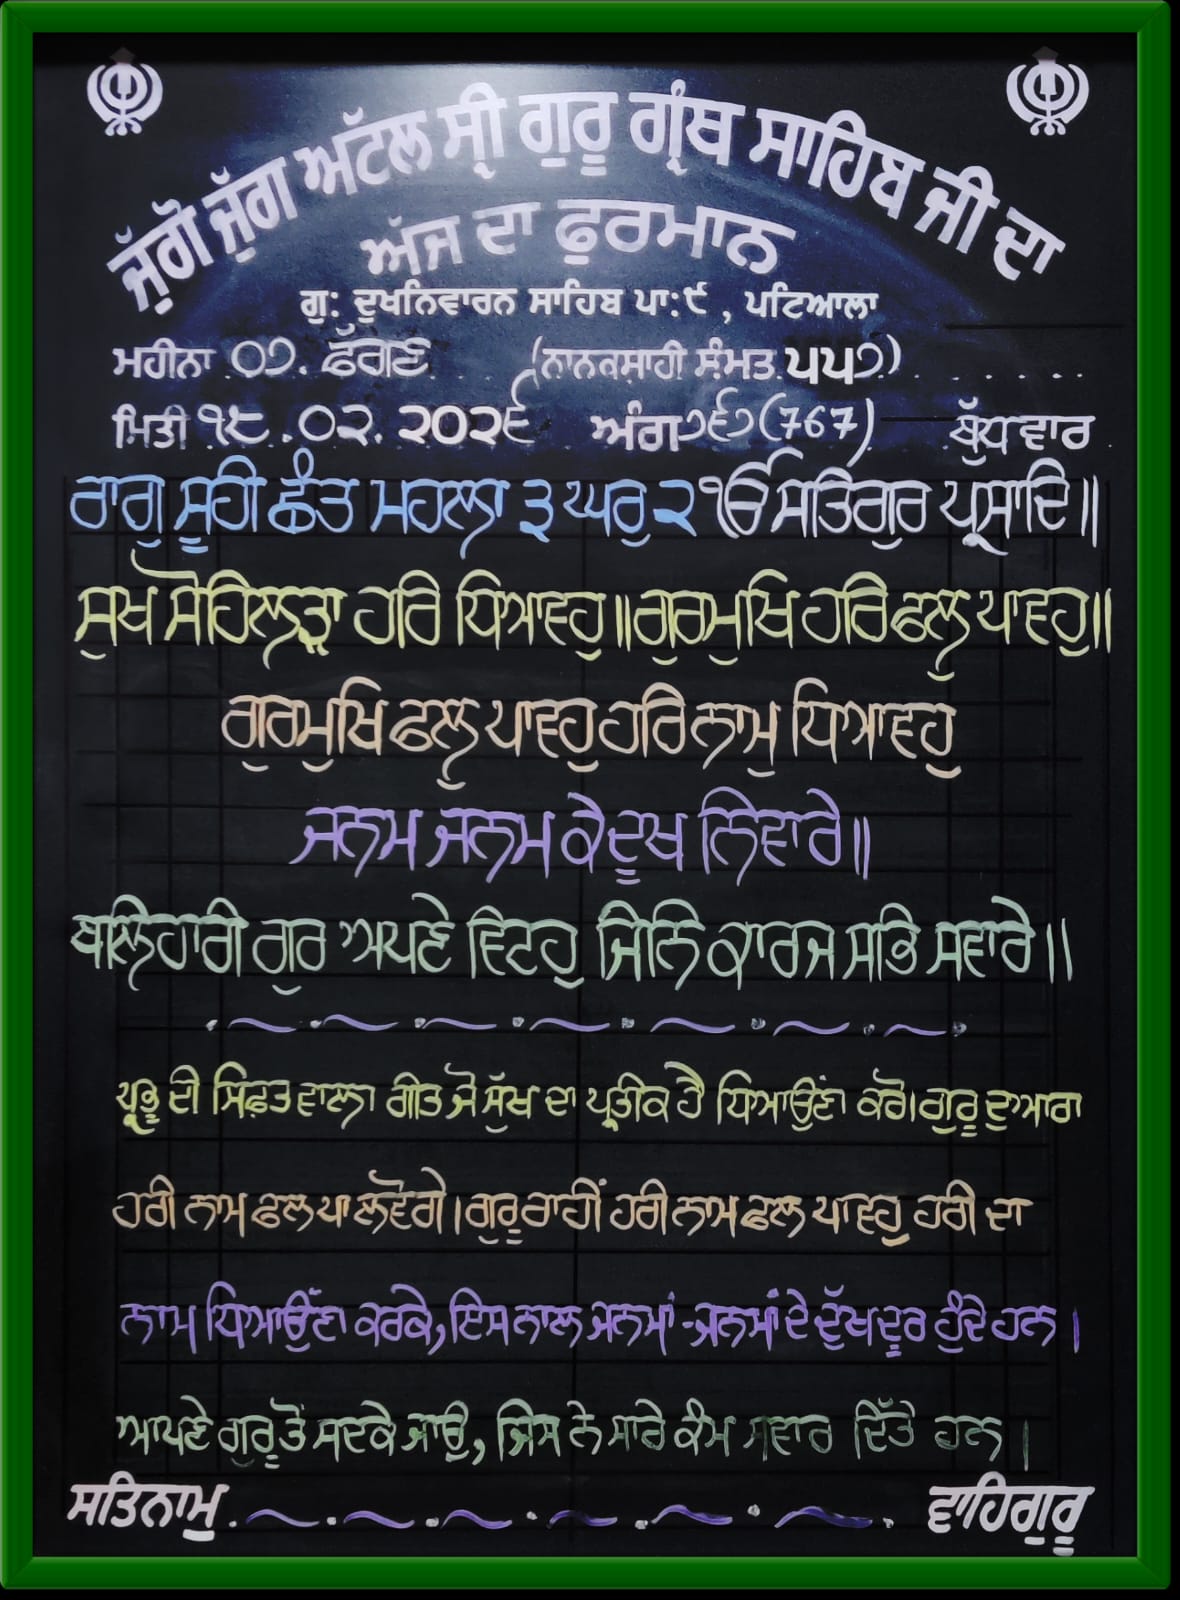 ਜੁੱਗੋ ਜੁੱਗ ਅੱਟਲ ਸ੍ਰੀ ਗੁਰੂ ਗ੍ਰੰਥ ਸਾਹਿਬ ਜੀ ਦਾ
ਅੱਜ ਦਾ ਫੁਰਮਾਨ
ਗੁ: ਦੁਖਨਿਵਾਰਨ ਸਾਹਿਬ ਪਾ:੯, ਪਟਿਆਲਾ
ਮਹੀਨਾ ੦੭. ਫੱਗਣ (ਨਾਨਕਸ਼ਾਹੀ ਸੰਮਤ ੫੫੭)
ਮਿਤੀ ੧੮.੦੨.੨੦੨੬ ਅੰਗ ੭੬੭(767) ਬੁੱਧਵਾਰ
ਰਾਗੁ ਸੂਹੀ ਛੰਤ ਮਹਲਾ ੩ ਘਰੁ ੨ ੴ ਸਤਿਗੁਰ ਪ੍ਰਸਾਦਿ॥
ਸੁਖ ਸੋਹਿਲੜਾ ਹਰਿ ਧਿਆਵਹੁ॥ਗੁਰਮੁਖਿ ਹਰਿ ਫਲੁ ਪਾਵਹੁ॥
ਗੁਰਮੁਖਿ ਫਲੁ ਪਾਵਹੁ ਹਰਿ ਨਾਮੁ ਧਿਆਵਹੁ
ਜਨਮ ਜਨਮ ਕੇ ਦੂਖ ਨਿਵਾਰੇ॥
ਬਲਿਹਾਰੀ ਗੁਰ ਅਪਣੇ ਵਿਟਹੁ ਜਿਨਿ ਕਾਰਜ ਸਭਿ ਸਵਾਰੇ॥
ਪ੍ਰਭੂ ਦੀ ਸਿਫ਼ਤ ਵਾਲਾ ਗੀਤ ਜੋ ਸੁੱਖ ਦਾ ਪ੍ਰਤੀਕ ਹੈ ਧਿਆਉਣਾਂ ਕਰੋ।ਗੁਰੂ ਦੁਆਰਾ
ਹਰੀ ਨਾਮ ਫਲ ਪਾ ਲਵੋਗੇ।ਗੁਰੂ ਰਾਹੀਂ ਹਰੀ ਨਾਮ ਫਲ ਪਾਵਹੁ ਹਰੀ ਦਾ
ਨਾਮ ਧਿਆਉਣਾਂ ਕਰਕੇ, ਇਸ ਨਾਲ ਜਨਮਾਂ-ਜਨਮਾਂ ਦੇ ਦੁੱਖ ਦੂਰ ਹੁੰਦੇ ਹਨ।
ਆਪਣੇ ਗੁਰੂ ਤੋਂ ਸਦਕੇ ਜਾਊ, ਜਿਸ ਨੇ ਸਾਰੇ ਕੰਮ ਸਵਾਰ ਦਿੱਤੇ ਹਨ।
ਸਤਿਨਾਮੁ ਵਾਹਿਗੁਰੂ